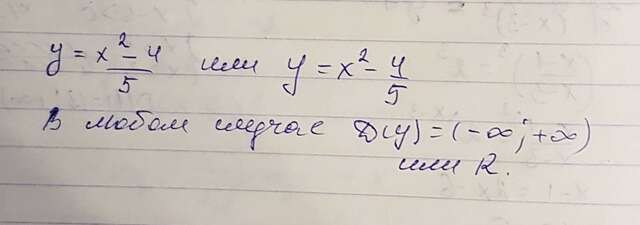 y = (x² - 4)/5 или y = x² - 4/5
В любом случае D(y) = (-∞; +∞)
или R.